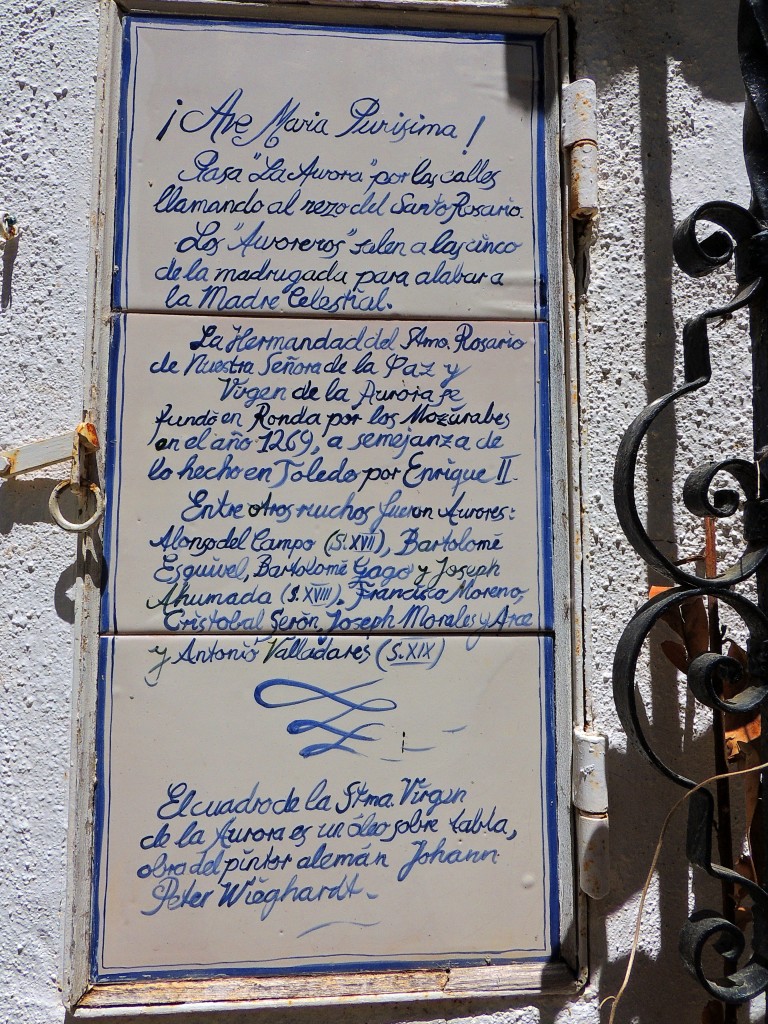 ¡Ave Maria Purisima!
Pasa "La Aurora" por las calles
llamando al rezo del Santo Rosario.
Los "Auroreros" salen a las cinco
de la madrugada para alabar a
la Madre Celestial.
La Hermandad del Stmo. Rosario
de Nuestra Señora de la Paz y
Virgen de la Aurora se
fundó en Ronda por los Mozárabes
en el año 1269, a semejanza de
lo hecho en Toledo por Enrique II.
Entre otros muchos fueron Aurores:
Alonso del Campo (S.XVII), Bartolomé
Esquivel, Bartolomé Gago y Joseph
Ahumada (S.XVIII), Francisco Moreno,
Cristobal Serón, Joseph Morales y Arce
y Antonio Valladares (S.XIX)
El cuadro de la Stma. Virgen
de la Aurora es un óleo sobre tabla,
obra del pintor alemán Johann
Peter Wieghardt